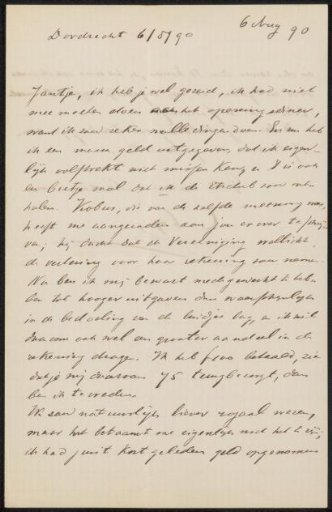 6 Aug 90
Dordrecht 6/8/90
Jantje, ik heb je wel gezegd, ik had niet
mee moeten doen aan het openingsdiner,
want ik zou zeker malle dingen doen. En nu heb
ik een massa geld uitgegeven, dat ik eigen-
lijk volstrekt niet missen kan, en 't is ook
een beetje mal dat ik de
halen. Kobus, die van de zelfde meening was,
heeft me aangeraden aan jou er over te schrij-
ven; hij dacht dat de Vereeniging wellicht
de verlening voor haar rekening zou nemen.
Nu ben ik mij bewust medegewerkt te heb-
ben tot hooger uitgaven dan waarschijnlijk
in de bedoeling van de luidjes lag, en ik wil
daarom ook wel een grooter aandeel in de
rekening dragen. Ik heb betaald, zie
dat je mij daarvan 75 terugbezorgt, dan
ben ik tevreden.
Ik zou natuurlijk liever royaal wezen,
maar het betaamt me eigenlijk niet het te zijn,
ik had juist kort geleden geld opgenomen